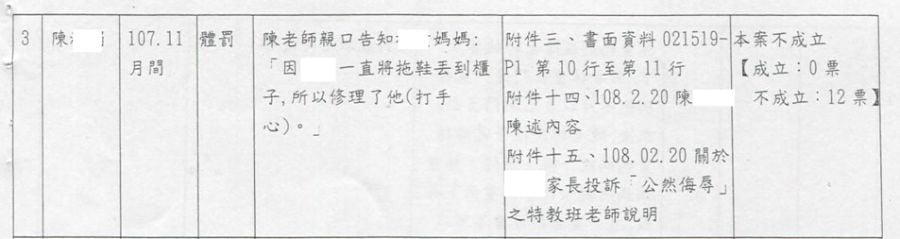 3
陳
107.11
月間
體罰
陳老師親口告知 媽媽:
「因 一直將拖鞋丟到櫃
子,所以修理了他(打手
心)。」
附件三、書面資料 021519-
P1 第 10 行至第 11 行
附件十四、108.2.20 陳
陳述內容
附件十五、108.02.20 關於
家長投訴「公然侮辱」
之特教班老師說明
本案不成立
【成立:0 票
不成立:12 票】